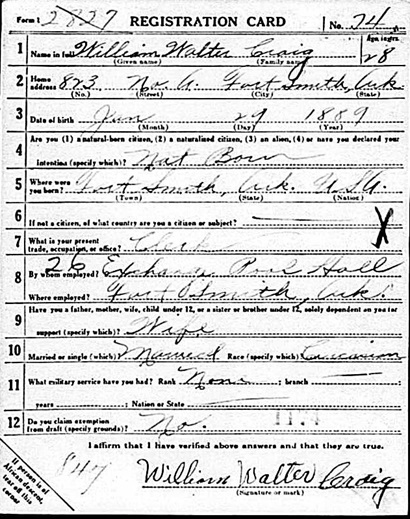 Form 1 2827 REGISTRATION CARD No. 74
1 Name in full William Walter Craig Age in yrs. 28
(Given name) (Family name)
2 Home address 823 No. A. Fort Smith, Ark.
(No.) (Street) (City) (State)
3 Date of birth 29 1889
(Month) (Day) (Year)
4 Are you (1) a natural-born citizen, (2) a naturalized citizen, (3) an alien, (4) or have you declared your
intention (specify which)? Nat Born
5 Where were you born? Fort Smith, Ark. USA.
(Town) (State) (Nation)
6 If not a citizen, of what country are you a citizen or subject?
X
7 What is your present trade, occupation, or office? Clerk
26
8 By whom employed? Exchange Pool Hall
Where employed? Fort Smith, Ark.
9 Have you a father, mother, wife, child under 12, or a sister or brother under 12, solely dependent on you for
support (specify which)? Wife
10 Married or single (which)? Married Race (specify which)? Caucasian
11 What military service have you had? Rank None ; branch
years ; Nation or State
12 Do you claim exemption from draft (specify grounds)? No.
I affirm that I have verified above answers and that they are true.
847
William Walter Craig
(Signature or mark)
If person is of African descent, tear off this corner